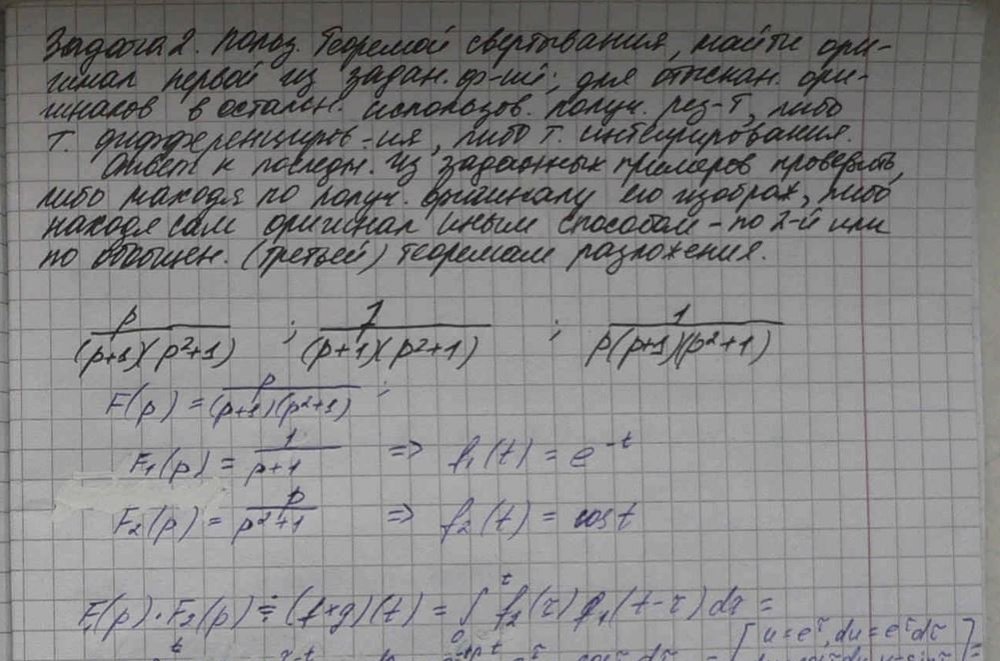 Задача 2. Польз. Теоремой свертывания, найти ори-
гинал первой из задан. ф-ий; для отыскан. ори-
гиналов в остальн. использов. получ. рез-т, либо
т. дифференциров-ия, либо т. интегрирования.
Ответ к последн. из заданных примеров проверить,
либо находя по получ. оригиналу его изображ, либо
находя сам оригинал иным способом - по 2-й или
по обобщен. (третьей) теоремам разложения.
p/((p+1)(p²+1)) ; 1/((p+1)(p²+1)) ; 1/(p(p+1)(p²+1))
F(p) = p/((p+1)(p²+1)) ;
F₁(p) = 1/(p+1) => f₁(t) = e^(-t)
F₂(p) = p/(p²+1) => f₂(t) = cos t
F₁(p)·F₂(p) ≑ (f*g)(t) = ∫₀ᵗ f₂(τ) f₁(t-τ) dτ =
[u = e^τ, du = e^τ dτ